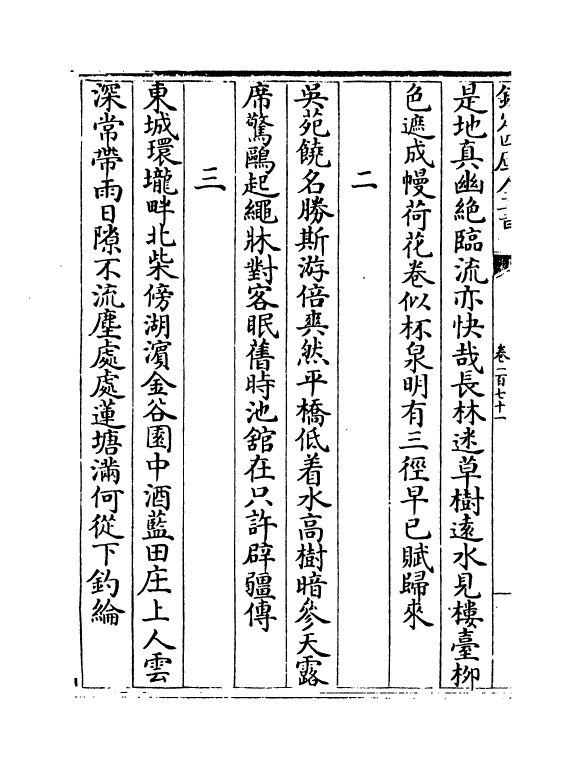 卷二百七十一
是地真幽絶臨流亦快哉長林迷草樹逺水見樓臺柳
色遮成幔荷花卷似杯泉明有三徑早已賦歸來
二
吳苑饒名勝斯游倍爽然平橋低着水高樹暗參天露
席驚鷗起繩牀對客眠舊時池舘在只許辟疆傳
三
東城環壠畔北柴傍湖濵金谷園中酒藍田庄上人雲
深常帶雨日隙不流塵處處蓮塘滿何從下釣綸